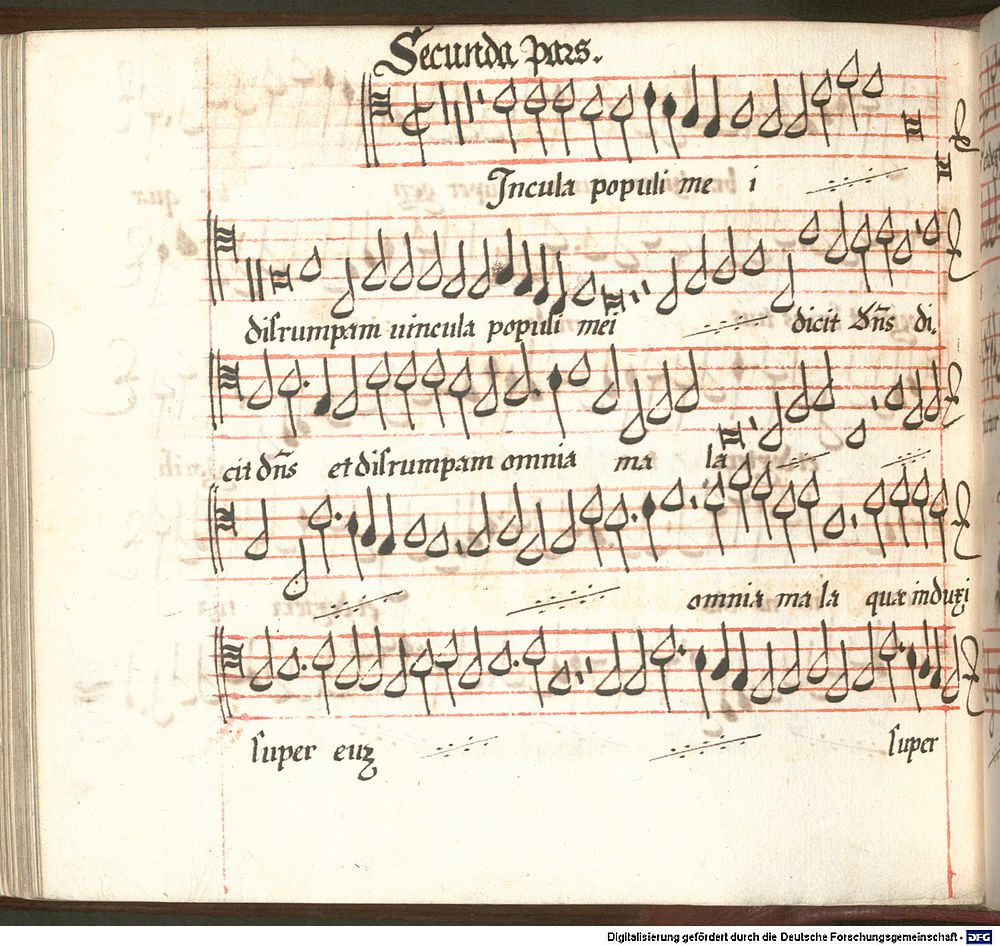 Secunda pars.
Incula populi me i
disrumpam uincula populi mei dicit dñs di,
cit dñs et disrumpam omnia ma la
omnia mala quæ induxi
super euʒ super
Digitalisierung gefördert durch die Deutsche Forschungsgemeinschaft - DFG